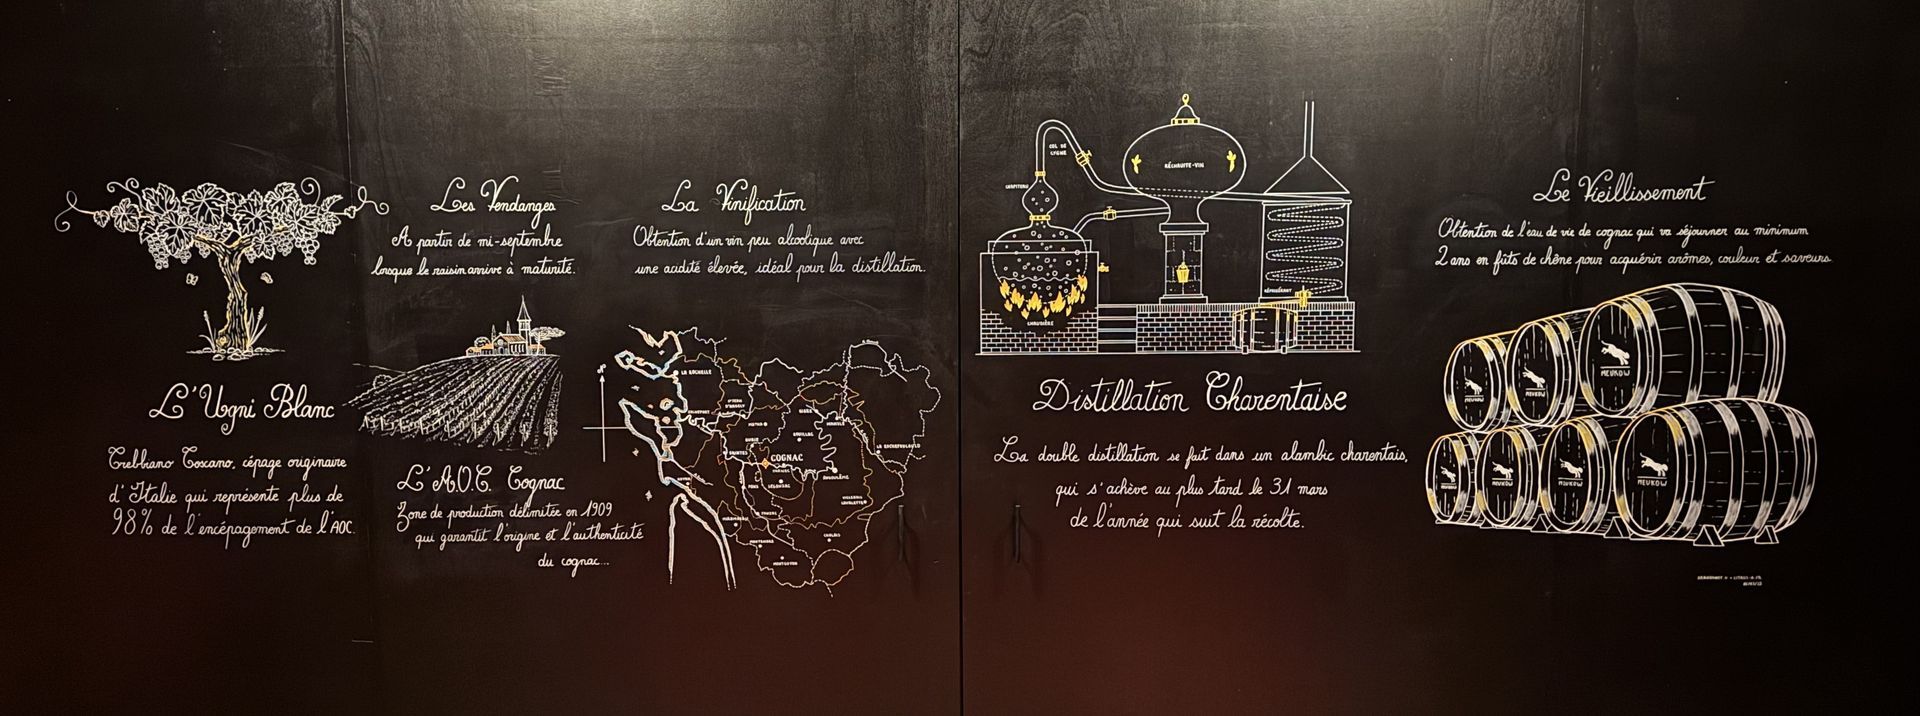 L'Ugni Blanc
Trebbiano Toscano, cépage originaire
d'Italie qui représente plus de
98% de l'encépagement de l'AOC.
Les Vendanges
À partir de mi-septembre
lorsque le raisin arrive à maturité.
L'A.O.C. Cognac
Zone de production délimitée en 1909
qui garantit l'origine et l'authenticité
du cognac...
La Vinification
Obtention d'un vin peu alcoolique avec
une acidité élevée, idéal pour la distillation.
LA ROCHELLE
ROCHEFORT
SAINTES
COGNAC
JARNAC
SEGONZAC
PONS
ANGOULÊME
LA ROCHEFOUCAULD
ROUILLAC
CHALAIS
MONTENDRE
MONTGUYON
COL DE
CYGNE
CHAPITEAU
RÉCHAUFFE-VIN
RÉFRIGÉRANT
CHAUDIÈRE
Distillation Charentaise
La double distillation se fait dans un alambic charentais,
qui s'achève au plus tard le 31 mars
de l'année qui suit la récolte.
Le Vieillissement
Obtention de l'eau de vie de cognac qui va séjourner au minimum
2 ans en fûts de chêne pour acquérir arômes, couleur et saveurs.
MEUKOW
MEUKOW
MEUKOW
MEUKOW
MEUKOW
MEUKOW
MEUKOW